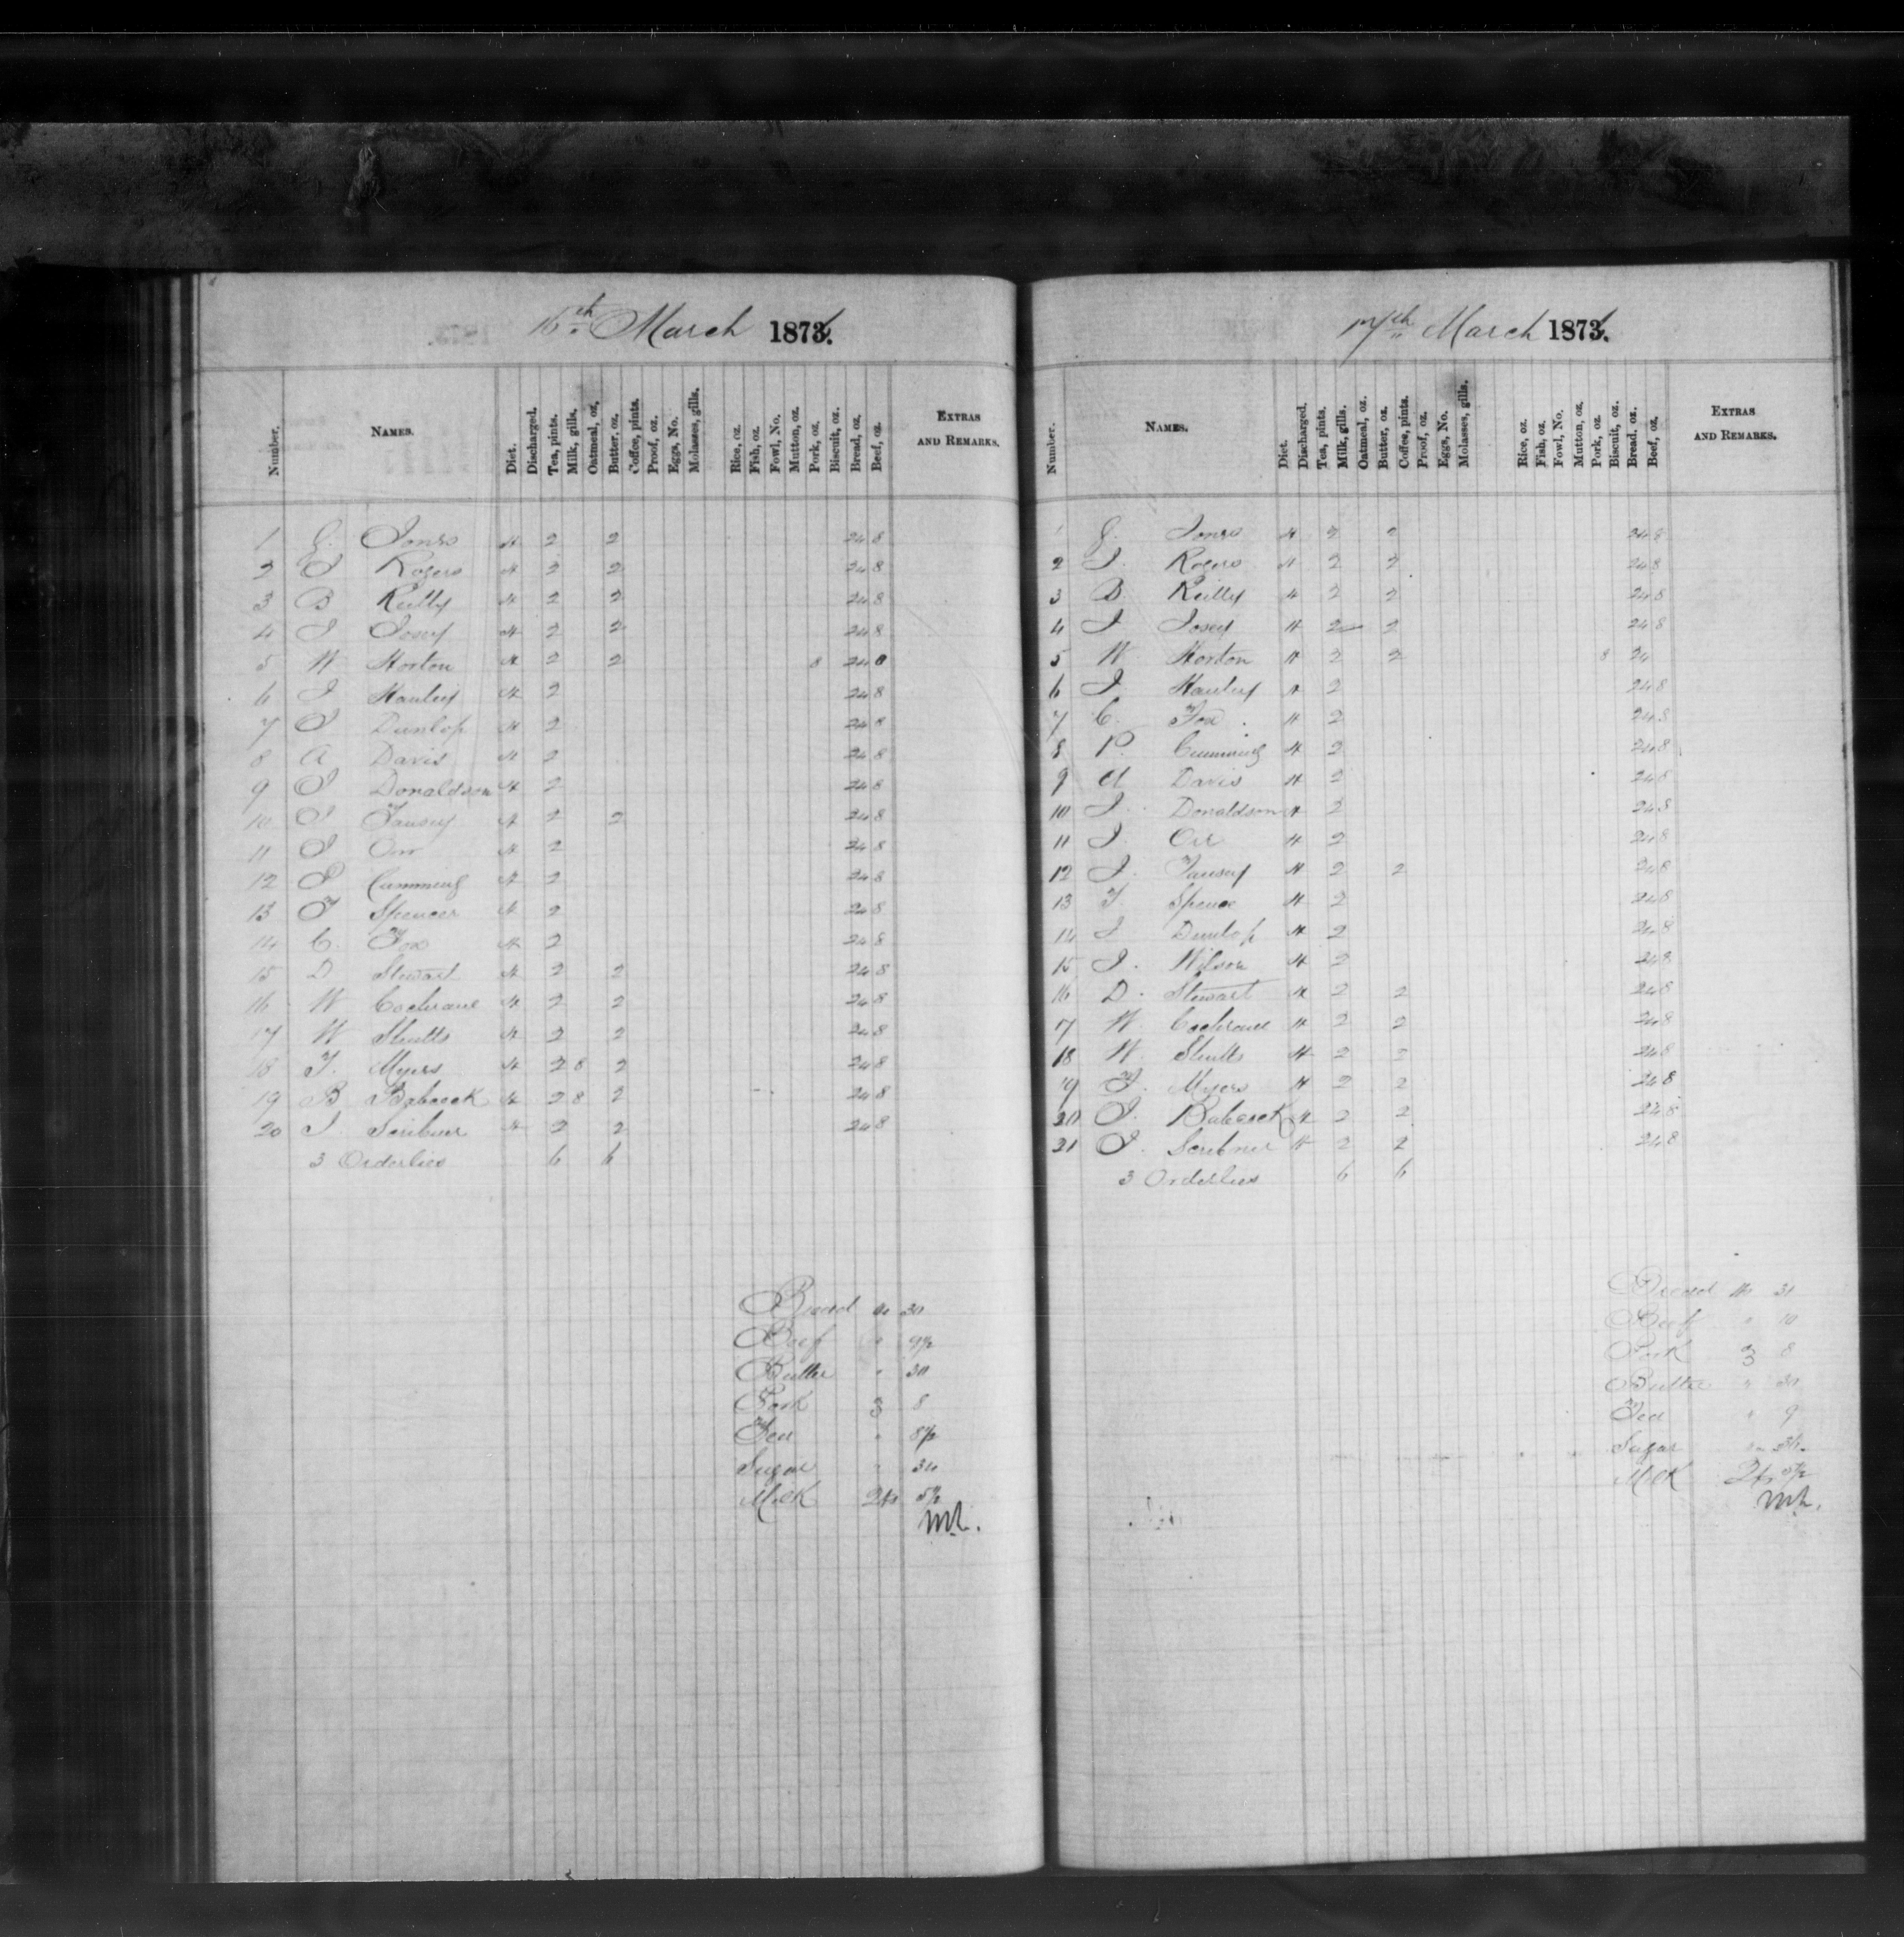 16th March 1874.
Number. NAMES. Diet. Discharged. Tea, pints. Milk, gills. Oatmeal, oz. Butter, oz. Coffee, pints. Proof, oz. Eggs, No. Molasses, gills. Rice, oz. Fish, oz. Fowl, No. Mutton, oz. Pork, oz. Biscuit, oz. Bread, oz. Beef, oz. EXTRAS AND REMARKS.
1 G. Jones H 2 2 24 8
2 J Rogers H 2 2 24 8
3 B Reilly H 2 2 24 8
4 J Josey H 2 2 24 8
5 W Horton H 2 2 8 24
6 J Hanley H 2 24 8
7 J Dunlop H 2 24 8
8 A Davis H 2 24 8
9 J Donaldson H 2 24 8
10 J Tansey H 2 2 24 8
11 J Orr H 2 24 8
12 P Cumming H 2 24 8
13 T Spencer H 2 24 8
14 C. Fox H 2 24 8
15 D Stewart H 2 2 24 8
16 W Cochrane H 2 2 24 8
17 W Shutts H 2 2 24 8
18 F. Myers H 2 8 2 24 8
19 B Babcock H 2 8 2 24 8
20 J. Scribner H 2 2 24 8
3 Orderlies 6 6
Bread lbs 30
Beef " 9½
Butter " 30
Pork ℥ 8
Tea " 8½
Sugar " 34
Milk 2
17th March 1874.
Number. NAMES. Diet. Discharged. Tea, pints. Milk, gills. Oatmeal, oz. Butter, oz. Coffee, pints. Proof, oz. Eggs, No. Molasses, gills. Rice, oz. Fish, oz. Fowl, No. Mutton, oz. Pork, oz. Biscuit, oz. Bread, oz. Beef, oz. EXTRAS AND REMARKS.
1 G. Jones H 2 2 24 8
2 J. Rogers H 2 2 24 8
3 B. Reilly H 2 2 24 8
4 J Josey H 2 2 24 8
5 W Horton H 2 2 8 24
6 J. Hanley H 2 24 8
7 C. Fox H 2 24 8
8 P. Cumming H 2 24 8
9 A Davis H 2 24 8
10 J. Donaldson H 2 24 8
11 J. Orr H 2 24 8
12 J. Tansey H 2 2 24 8
13 T. Spence H 2 24 8
14 J Dunlop H 2 24 8
15 J. Wilson H 2 24 8
16 D. Stewart H 2 2 24 8
17 W. Cochrane H 2 2 24 8
18 W. Shutts H 2 2 24 8
19 F. Myers H 2 2 24 8
20 J. Babcock H 2 2 24 8
21 J. Scribner H 2 2 24 8
3 Orderlies 6 6
Bread lbs 31
Beef " 10
Pork ℥ 8
Butter " 30
Tea " 9
Sugar
Milk